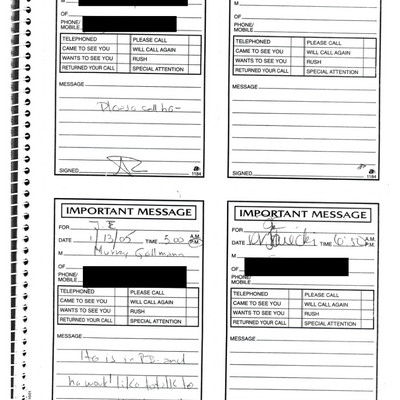 M
OF
PHONE/
MOBILE
TELEPHONED PLEASE CALL
CAME TO SEE YOU WILL CALL AGAIN
WANTS TO SEE YOU RUSH
RETURNED YOUR CALL SPECIAL ATTENTION
MESSAGE
Please call her
SIGNED
1184
PHONE/
MOBILE
TELEPHONED PLEASE CALL
CAME TO SEE YOU WILL CALL AGAIN
WANTS TO SEE YOU RUSH
RETURNED YOUR CALL SPECIAL ATTENTION
MESSAGE
SIGNED
1184
IMPORTANT MESSAGE
FOR JE
DATE 1/13/05 TIME 5:00 A.M. P.M.
M Murray
OF
PHONE/
MOBILE
TELEPHONED PLEASE CALL
CAME TO SEE YOU WILL CALL AGAIN
WANTS TO SEE YOU RUSH
RETURNED YOUR CALL SPECIAL ATTENTION
MESSAGE
He is in and
he would like to
IMPORTANT MESSAGE
FOR
DATE TIME A.M. P.M.
M
OF
PHONE/
MOBILE
TELEPHONED PLEASE CALL
CAME TO SEE YOU WILL CALL AGAIN
WANTS TO SEE YOU RUSH
RETURNED YOUR CALL SPECIAL ATTENTION
MESSAGE